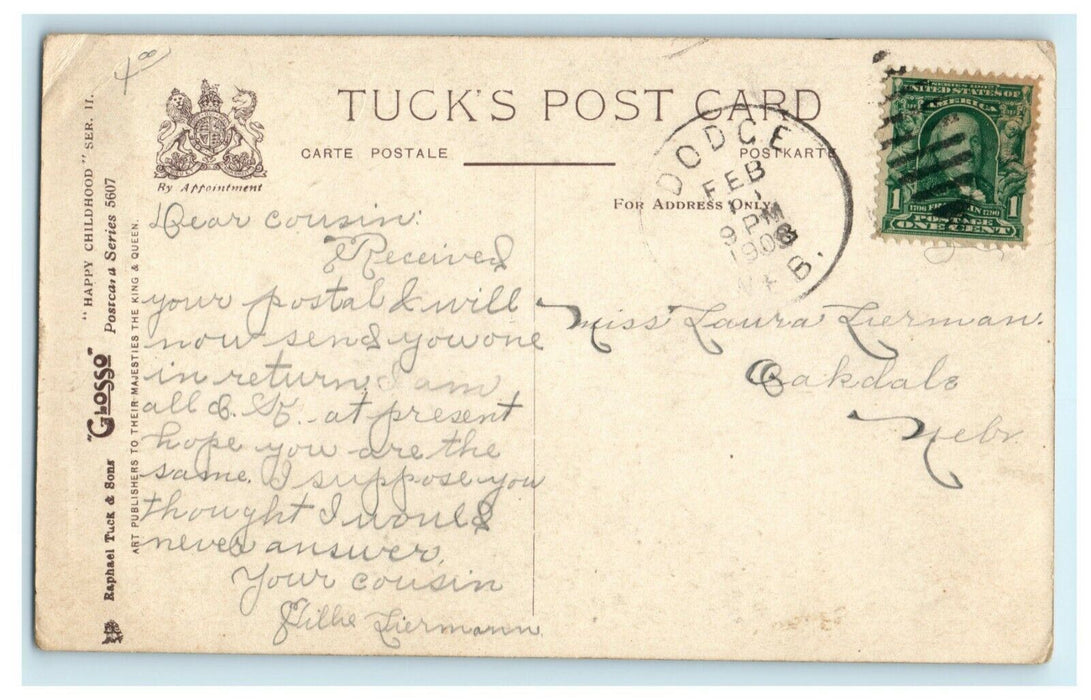 4.00
TUCK'S POST CARD
CARTE POSTALE
POSTKARTE
By Appointment
FOR ADDRESS ONLY
"HAPPY CHILDHOOD" SER. II.
Postcard Series 5607
"GLOSSO"
Raphael Tuck & Sons
ART PUBLISHERS TO THEIR MAJESTIES THE KING & QUEEN.
DODGE
FEB
9 PM
1908
SERIES 1902
UNITED STATES OF
AMERICA
1 1706 FRANKLIN 1790 1
POSTAGE
ONE CENT
Dear cousin:
Received
your postal & will
now send you one
in return, I am
all O. K. at present
hope you are the
same. I suppose you
thought I would
never answer.
Your cousin
Liermann.
Miss Laura Lierman.
Oakdale
Nebr.